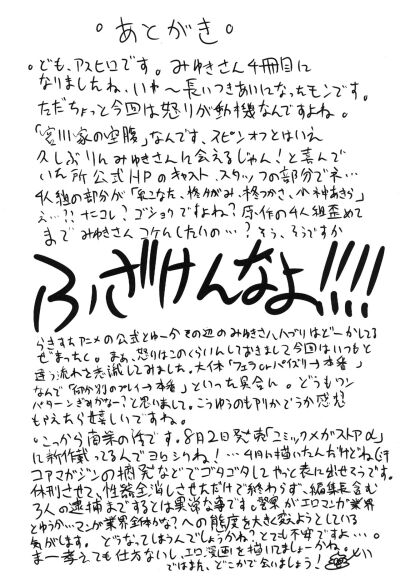 。あとがき。
。ども、アスヒロです。みゆきさん4冊目に
なりましたね、いや〜長いつきあいになったモンです。
ただちょっと今回は怒りが動機なんですよね。
「宮川家の空腹」なんです、スピンオフとはいえ
久しぶりにみゆきさんに会えるじゃん!と喜んで
いた所公式HPのキャスト、スタッフの部分でネ…
4人組の部分が「泉こなた、柊かがみ、柊つかさ、小神あきら」
え…?!ナニコレ?ゴショクですよね?原作の4人組歪めて
までみゆきさんコケにしたいの…?そう、そうですか
ふざけんなよ!!!!
らきすたアニメの公式とゆーかその辺のみゆきさんハブりはどーかしてる
ぜまったく。まぁ、怒りはこのくらいにしておきまして今回はいつもと
違う流れを意識してみました。大体「フェラorパイズリ→本番」
なんで「何か別のプレイ→本番」といった具合に。どうもワン
パターンぎみかなー?と思いまして。こうゆうのもアリかどうか感想
もらえたら嬉しいですね。
。こっから商業の話です。8月2日発売「コミックメガストアα」
に新作載ってるんでヨロシクね!…4月に描いたんだけどね(汗
コアマガジンの摘発などでゴタゴタしてやっと表に出せそうです。
休刊させて、性器全消しさせただけで終わらず、編集長含む
3人の逮捕までするとは異常な事です。警察がエロマンガ業界
とゆうか…マンガ業界全体かな?への態度を大きく変えようとしている
気がします。どうなってしまうんでしょうかね?とても不安ですよ…。
ま一考えても仕方ないし、エロ漫画を描いてましょーかね。
ではまた、どこかで会いましょう!